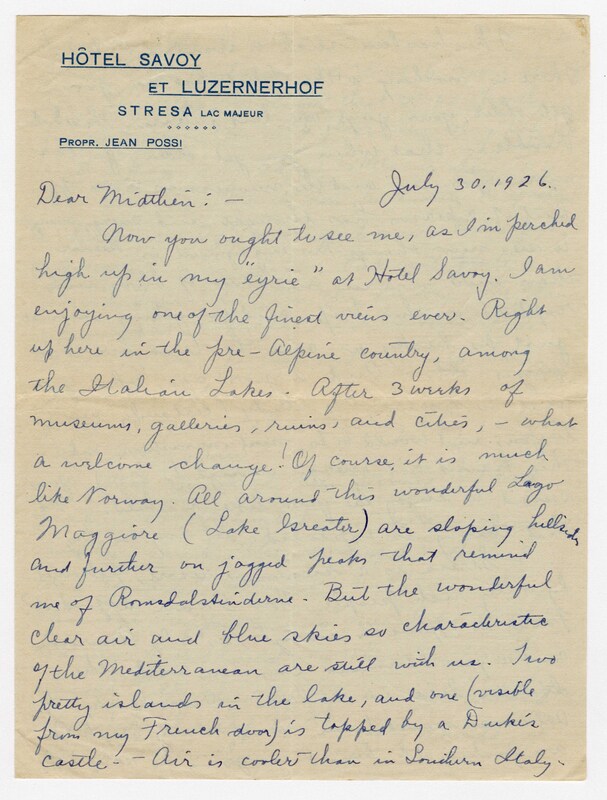 HÔTEL SAVOY
ET LUZERNERHOF
STRESA LAC MAJEUR
PROPR. JEAN POSSI
July 30. 1926.
Dear Midthien: —
Now you ought to see me, as I'm perched
high up in my "eyrie" at Hotel Savoy. I am
enjoying one of the finest views ever. Right
up here in the pre-Alpine country, among
the Italian Lakes. After 3 weeks of
museums, galleries, ruins, and cities, — what
a welcome change! Of course, it is much
like Norway. All around this wonderful Lago
Maggiore (Lake Greater) are sloping hillsides
and further on jagged peaks that remind
me of Romsdalstinderne. But the wonderful
clear air and blue skies so characteristic
of the Mediterranean are still with us. Two
pretty islands in the lake, and one (visible
from my French door) is topped by a Duke's
castle. - Air is cooler than in Southern Italy.